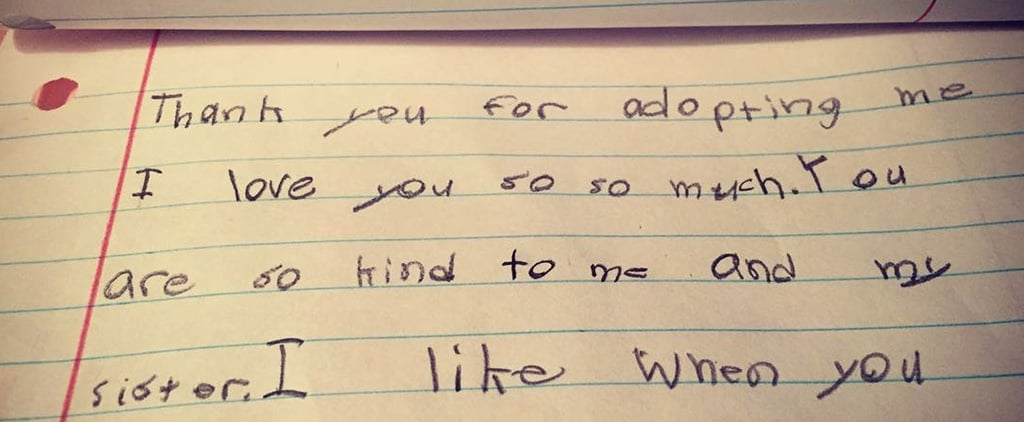 Thank you for adopting me
I love you so so much. You
are so kind to me and my
sister. I like when you